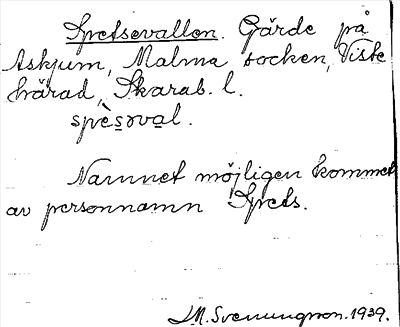 Spetsevallen. Gärde på
Askjum, Malma socken, Viste
härad, Skarab. l.
spèsəval.
Namnet möjligen kommet
av personnamn Spets.
J.M. Svenungson. 1939.